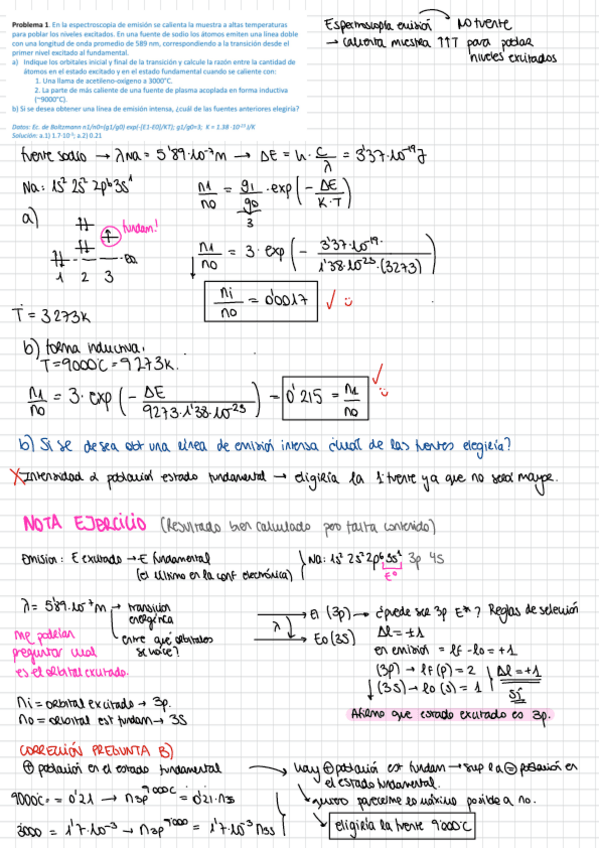 Problema 1. En la espectroscopia de emisión se calienta la muestra a altas temperaturas
para poblar los niveles excitados. En una fuente de sodio los átomos emiten una línea doble
con una longitud de onda promedio de 589 nm, correspondiendo a la transición desde el
primer nivel excitado al fundamental.
a) Indique los orbitales inicial y final de la transición y calcule la razón entre la cantidad de
átomos en el estado excitado y en el estado fundamental cuando se calienta con:
1. Una llama de acetileno-oxígeno a 3000°C.
2. La parte de más caliente de una fuente de plasma acoplada en forma inductiva
(~9000°C).
b) Si se desea obtener una línea de emisión intensa, ¿cuál de las fuentes anteriores elegiría?
Datos: Ec. de Boltzmann n1/n0=(g1/g0) exp(-[E1-E0]/KT); g1/g0=3; K = 1.38 ·10⁻²³ J/K
Solución: a.1) 1.7·10⁻³; a.2) 0.21
Espectroscopía emisión NO fuente
→ calienta muestra ↑↑T para poblar
niveles excitados
fuente sodio → λNa = 5'89·10⁻⁷m → ΔE = h · c/λ = 3'37·10⁻¹⁹J
Na: 1s² 2s² 2p⁶ 3s¹
n1/n0 = g1/g0 · exp(- ΔE/K·T)
3
a)
fundam!
1 2 3
n1/n0 = 3· exp(- 3'37·10⁻¹⁹/1'38·10⁻²³·(3273))
ni/no = 0'0017
T = 3273K
b) forma inductiva.
T = 9000°C = 9273K.
n1/n0 = 3· exp(- ΔE/9273·1'38·10⁻²³) = 0'215 = n1/n0
b) Si se desea obt una línea de emisión intensa ¿cuál de las fuentes elegiría?
X Intensidad α población estado fundamental → eligiría la 1ª fuente ya que no será mayor.
NOTA EJERCICIO (Resultado bien calculado pero falta contenido)
Emision: E excitado → E fundamental
(el último en la conf electrónica)
Na: 1s² 2s² 2p⁶ 3s¹ 3p 4s
E⁰
λ = 5'89·10⁻⁷m → transición
energética
entre qué orbitales
se voice?
me podrían
preguntar cual
es el orbital excitado.
λ
E1 (3p) → ¿puede ser 3p E*? Reglas de selección
E0 (3s)
Δl = ±1
en emisión = lf - lo = +1
(3p) → lf (p) = 2
(3s) → lo (s) = 1
Δl = +1
Sí
Afirmo que estado excitado es 3p.
ni = orbital excitado → 3p.
no = orbital est fundam → 3s
CORRECCIÓN PREGUNTA B)
⊕ población en el estado fundamental
hay ⊕ población est fundam → sup la ⊖ población en
el estado fundamental.
quiero parecerme lo máximo posible a no.
eligiría la fuente 9'000°C
9000°C = 0'21 → n3p 9000°C = 0'21·n3s
3000 = 1'7·10⁻³ → n3p = 1'7·10⁻³ n3s